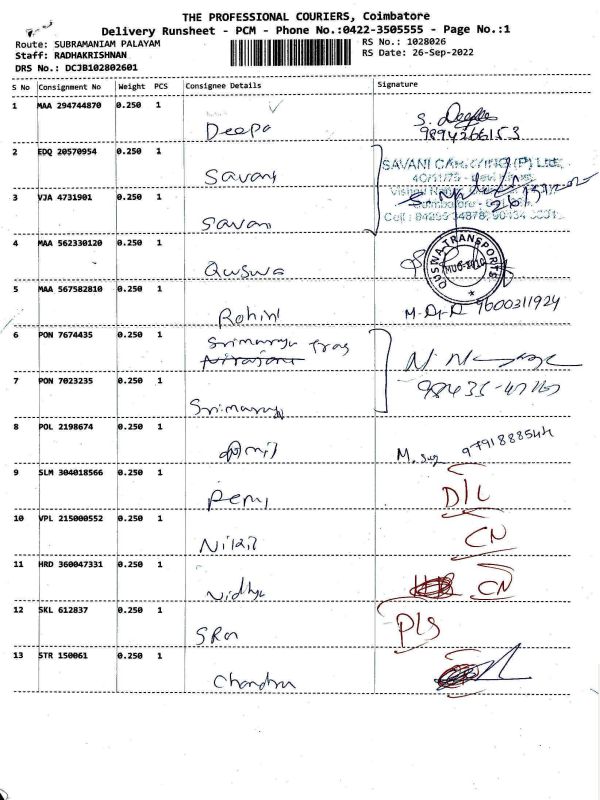 THE PROFESSIONAL COURIERS, Coimbatore
Delivery Runsheet - PCM - Phone No.:0422-3505555 - Page No.:1
Route: SUBRAMANIAM PALAYAM
RS No.: 1028026
Staff: RADHAKRISHNAN
RS Date: 26-Sep-2022
DRS No.: DCJB102802601
S No Consignment No Weight PCS Consignee Details Signature
1 MAA 294744870 0.250 1
Deepa S. Deepa
9894366153
2 EDQ 20570954 0.250 1
Savani
SAVANI (P) Ltd.,
3 VJA 4731901 0.250 1
Savani
4 MAA 562330120 0.250 1
Quswa
QUSWA TRANSPORTS
5 MAA 567582810 0.250 1
Rohini
9600311924
6 PON 7674435 0.250 1
Srimaruya Tras
Nirajani
7 PON 7023235 0.250 1
Srimaruya
8 POL 2198674 0.250 1
Amil
9791888544
9 SLM 304018566 1 0.250 1
Remi D/L
10 VPL 215000552 0.250 1
Nikil CN
11 HRD 360047331 0.250 1
Nidhya CN
12 SKL 612837 0.250 1
SRn PLS
13 STR 150061 0.250 1
Chandra